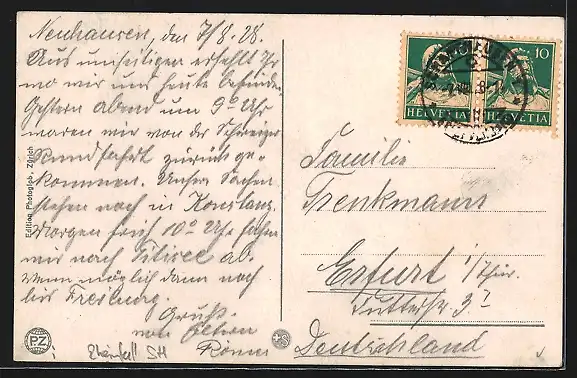 Neuhausen, den 7/8. 28.
Aus umseitigen ersehlt Ihr
wo wir uns heute befinden.
Gestern Abend um 9º Uhr
waren wir von der Schweizer
Rundfahrt zurück ge-
kommen. Unsre Sachen
stehen noch in Konstanz.
Morgen früh 10º Uhr fahren
wir nach Titisee ab.
Wenn möglich dann noch
bis Freiburg.
Gruß
Edition Photoglob, Zürich
PZ
Rheinfall SH
10
HELVETIA HELVETIA
Familie
Trenkmann
Erfurt i/Thür.
37
Deutschland